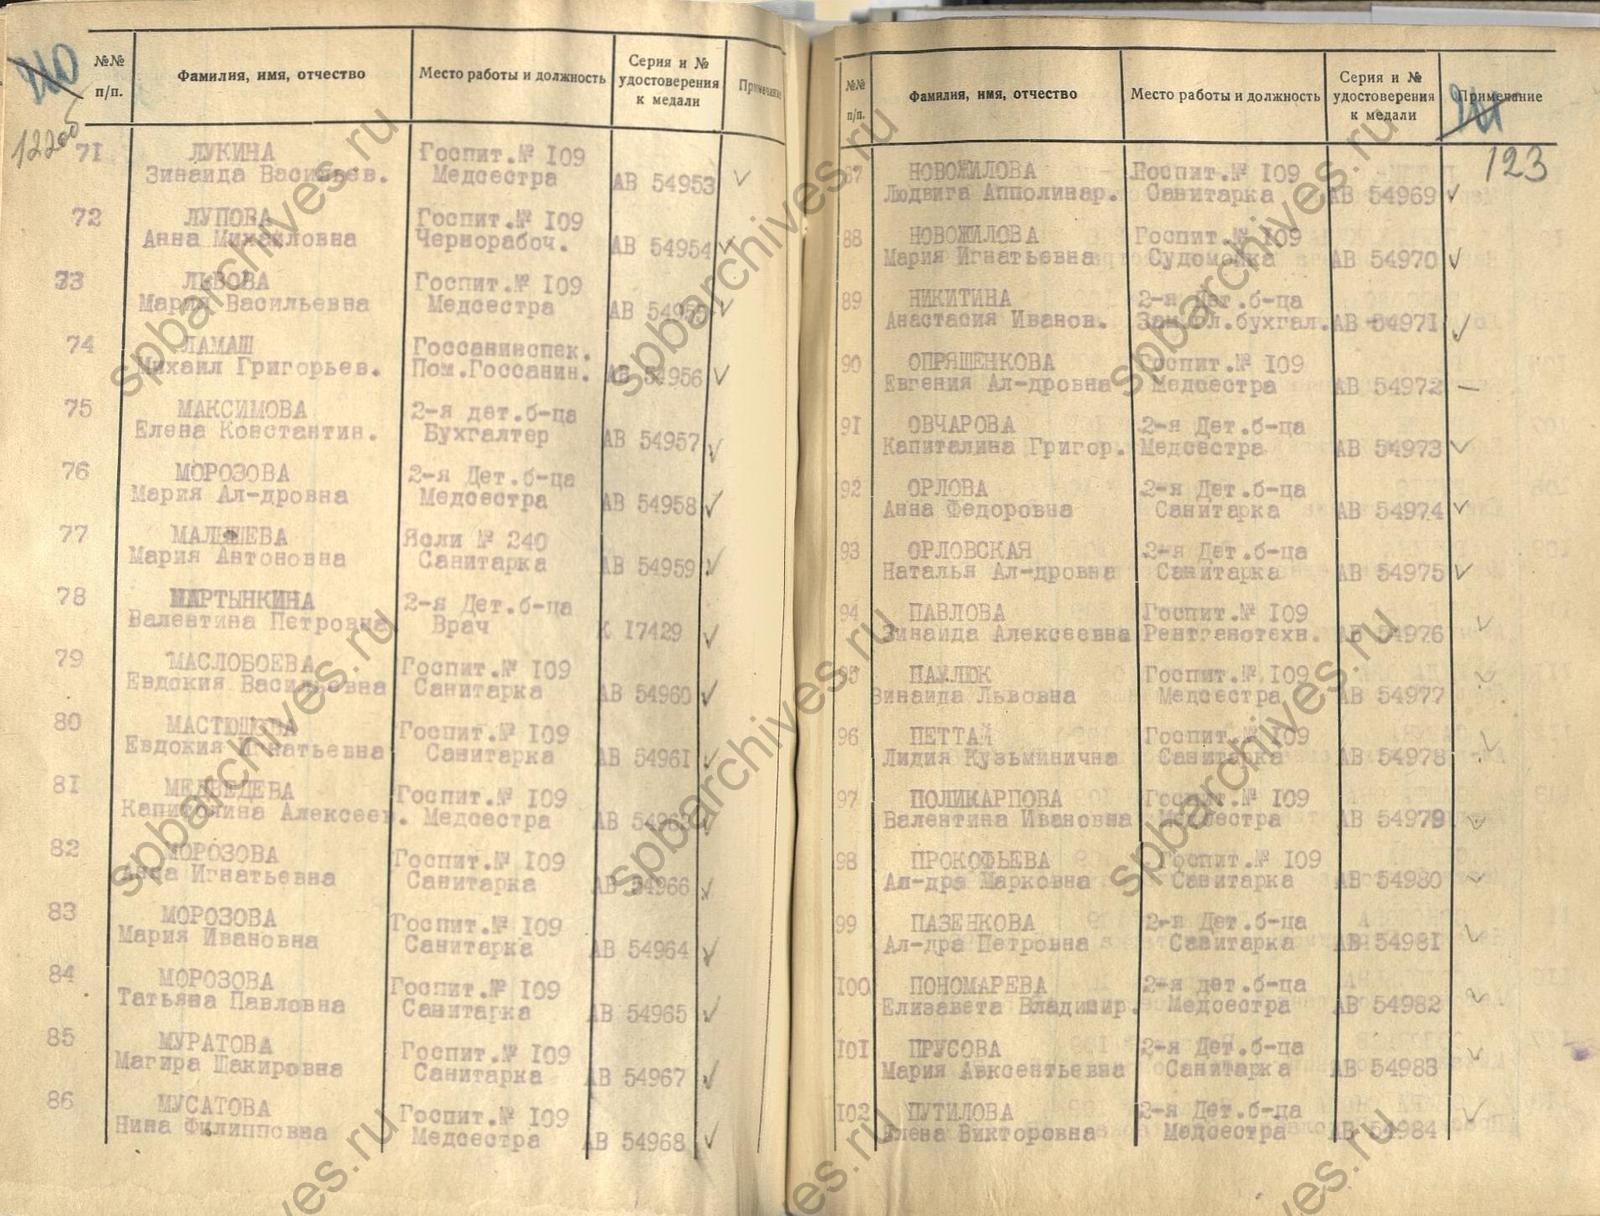 №№ п/п. Фамилия, имя, отчество Место работы и должность Серия и № удостоверения к медали
71 ЛУКИНА Госпит.№ 109
Зинаида Васильев. Медсестра АВ 54953
72 ЛУПОВА Госпит.№ 109
Анна Михайловна Чернорабоч. АВ 54954
73 ЛЬВОВА Госпит.№ 109
Мария Васильевна Медсестра АВ 54955
74 ЛАМАШ Госсанинспек.
Михаил Григорьев. Пом.Госсанин. АВ 54956
75 МАКСИМОВА 2-я дет.б-ца
Елена Константин. Бухгалтер АВ 54957
76 МОРОЗОВА 2-я Дет.б-ца
Мария Ал-дровна Медсестра АВ 54958
77 МАЛЫШЕВА Ясли № 240
Мария Антоновна Санитарка АВ 54959
78 МАРТЫНКИНА 2-я Дет.б-ца
Валентина Петровна Врач К 17429
79 МАСЛОБОЕВА Госпит.№ 109
Евдокия Васильевна Санитарка АВ 54960
80 МАСТЮШЕВА Госпит.№ 109
Евдокия Игнатьевна Санитарка АВ 54961
81 МЕДВЕДЕВА Госпит.№ 109
Капитолина Алексеев. Медсестра АВ
82 МОРОЗОВА Госпит.№ 109
Анна Игнатьевна Санитарка АВ 54966
83 МОРОЗОВА Госпит.№ 109
Мария Ивановна Санитарка АВ 54964
84 МОРОЗОВА Госпит.№ 109
Татьяна Павловна Санитарка АВ 54965
85 МУРАТОВА Госпит.№ 109
Магира Шакировна Санитарка АВ 54967
86 МУСАТОВА Госпит.№ 109
Нина Филипповна Медсестра АВ 54968
№№ п/п. Фамилия, имя, отчество Место работы и должность Серия и № удостоверения к медали Примечание
123
87 НОВОЖИЛОВА Госпит.№ 109
Людвига Апполинар. Санитарка АВ 54969
88 НОВОЖИЛОВА Госпит.№ 109
Мария Игнатьевна Судомойка АВ 54970
89 НИКИТИНА 2-я Дет.б-ца
Анастасия Иванов. Зам.гл.бухгал. АВ 54971
90 ОПРЯШЕНКОВА Госпит.№ 109
Евгения Ал-дровна Медсестра АВ 54972
91 ОВЧАРОВА 2-я Дет.б-ца
Капиталина Григор. Медсестра АВ 54973
92 ОРЛОВА 2-я Дет.б-ца
Анна Федоровна Санитарка АВ 54974
93 ОРЛОВСКАЯ 2-я Дет.б-ца
Наталья Ал-дровна Санитарка АВ 54975
94 ПАВЛОВА Госпит.№ 109
Зинаида Алексеевна Рентгенотехн. АВ 54976
95 ПАУЛЮК Госпит.№ 109
Зинаида Львовна Медсестра АВ 54977
96 ПЕТТАЙ Госпит.№ 109
Лидия Кузьминична Санитарка АВ 54978
97 ПОЛИКАРПОВА Госпит.№ 109
Валентина Ивановна Медсестра АВ 54979
98 ПРОКОФЬЕВА Госпит.№ 109
Ал-дра Марковна Санитарка АВ 54980
99 ПАЗЕНКОВА 2-я Дет.б-ца
Ал-дра Петровна Санитарка АВ 54981
100 ПОНОМАРЕВА 2-я дет.б-ца
Елизавета Владимир. Медсестра АВ 54982
101 ПРУСОВА 2-я Дет.б-ца
Мария Авксентьевна Санитарка АВ 54983
102 ПУТИЛОВА 2-я Дет.б-ца
Елена Викторовна Медсестра АВ 54984
spbarchives.ru